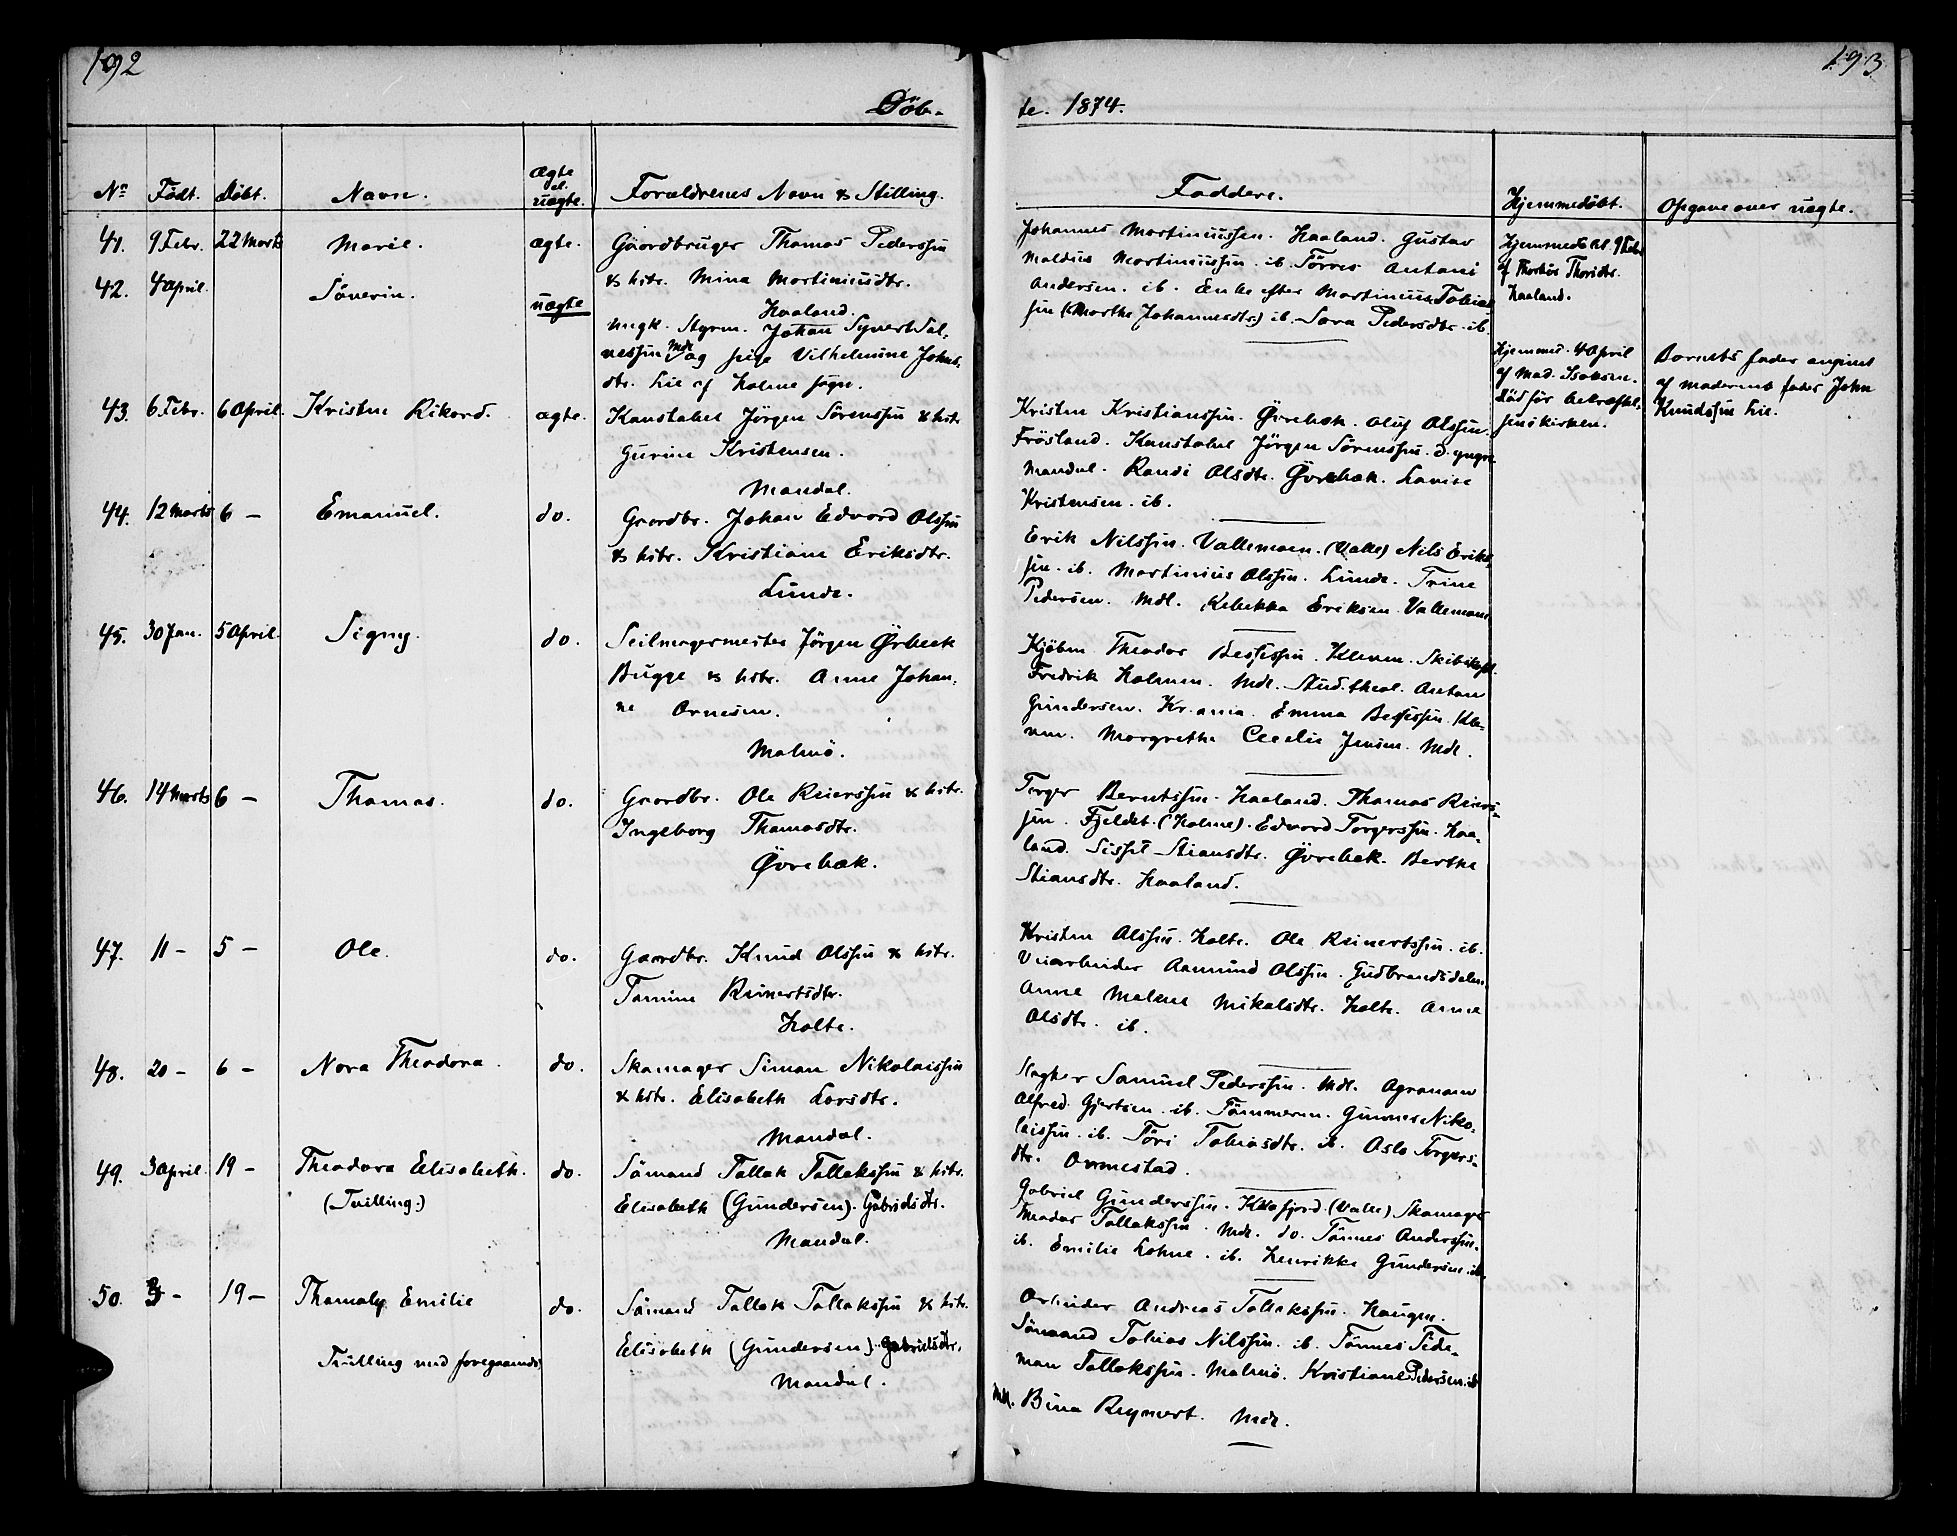 192
193
Döb-
te. 1874.
No Födt. Döbt. Navn. ægte el. uægte. Forældrenes Navn & Stilling. Faddere. Hjemmedöbt. Opgave over uægte.
41. 9 Febr. 22 Marts Marie. ægte. Gaardbruger Thomas Pederssen
& hstr. Mina Martiniusdtr.
Haaland.
Johannes Martiniussen. Haaland. Gustav
Maldius Martiniussen. ib. Törres Antoni
Andersen. ib. Enke efter Martinius Tobias
sen (Marthe Johannesdtr.) ib. Sara Pedersdtr. ib.
Hjemmedöbt 9 Febr
af Thorbör Thorsdtr.
Haaland.
42. 4 April. Söverin. uægte
ungk. Styrm. Johan Syvert Sal-
vessen Mdl og pige Vilhelmine Johns-
dtr. Lie af Holme sogn.
Hjemmed. 4 April
af Mad. Isaksen.
död för bekræftel-
sen i kirken.
Barnets fader angivet
af moderens fader John
Knudssen Lie.
43. 6 Febr. 6 April. Kristen Rikard. ægte. Konstabel Jörgen Sörenssen & hstr
Gurine Kristensen.
Mandal.
Kristen Kristianssen. Övrebæk. Oluf Olssen.
Frösland. Konstabel Jörgen Sörenssen. d. yngre
Mandal. Randi Olsdtr. Övrebæk. Lovise
Kristensen. ib.
44. 12 Marts 6 - Emanuel. do. Gaardbr. Johan Edvard Olssen
& hstr. Kristiane Eriksdtr.
Lunde.
Erik Nilssen. Vallemoen. (Valle) Nils Eriks
sen. ib. Martinius Olssen. Lunde. Trine
Pedersen. Mdl. Rebekka Eriksen Vallemoen
45. 30 Jan. 5 April. Signy. do. Seilmagermester Jörgen Örbeck
Bugge & hstr. Anne Johan-
ne Arnesen.
Malmö.
Kjöbm. Theodor Bessesen. Kleven. Skibskapt.
Fredrik Holmen. Mdl. Stud. theol. Anton
Gundersen. Kr.ania. Emma Bessesen. Kle-
ven. Margrethe Cecelie Jensen. Mdl.
46. 14 Marts 6 - Thomas. do. Gaardbr. Ole Reierssen & hstr.
Ingeborg Thomasdtr.
Övrebæk.
Torger Berntssen. Haaland. Thomas Reiers-
sen. Fjeldet. (Holme). Edvard Torgerssen. Haa-
land. Sissel Stiansdtr. Övrebæk. Berthe
Stiansdtr. Haaland.
47. 11 - 5 - Ole. do. Gaardbr. Knud Olssen & hstr.
Tomine Reinertsdtr.
Holte.
Kristen Olssen. Holte. Ole Reinertssen. ib.
Veiarbeider Aamund Olssen. Gudbrandsdalen
Anne Malene Mikalsdtr. Holte. Anne
Olsdtr. ib.
48. 20 - 6 - Nora Theodora. do. Skomager Simon Nikolaissen
& hstr. Elisabeth Larsdtr.
Mandal.
Slagter Samuel Pederssen. Mdl. Agronom
Alfred Gjertsen. ib. Tömmerm. Gunnes Niko-
laissen. ib. Töri Tobiasdtr. ib. Aslo Torgers-
dtr. Ormestad.
49. 3 April. 19 - Theodora Elisabeth. do. Sömand Tallak Tallakssen & hstr.
(Tvilling.) Elisabeth (Gundersen). Gabrielsdtr.
Mandal.
Gabriel Gunderssen. (Valle) Skomager
Theodor Tallakssen. Mdl. do. Tönnes Anderssen.
ib. Emilie Lohne. ib. Henrikke Gundersen. ib.
50. 3 - 19 - Thomaly Emilie do. Sömand Tallak Tallakssen & hstr.
Tvilling med foregaaende Elisabeth (Gundersen). Gabrielsdtr.
Mandal.
Arbeider Andreas Tallakssen. Haugen.
Sömand Tobias Nilssen. ib. Tönnes Tide-
man Tallakssen. Malmö. Kristiane Pedersen. ib
Mdl. Bina Reynert. Mdl.